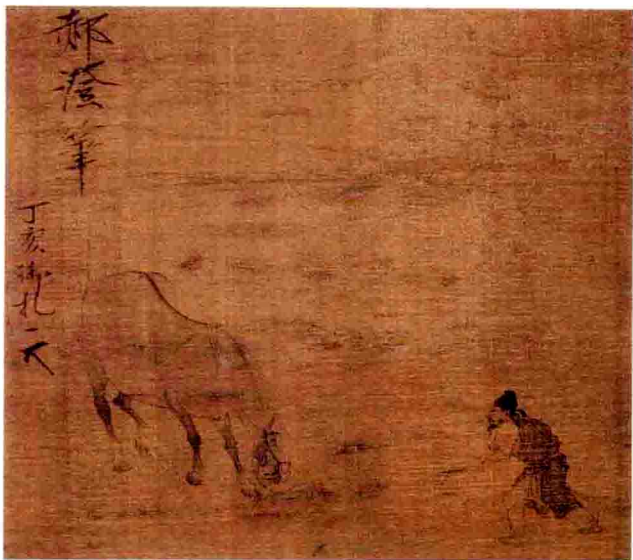 郝澄筆
丁亥御札